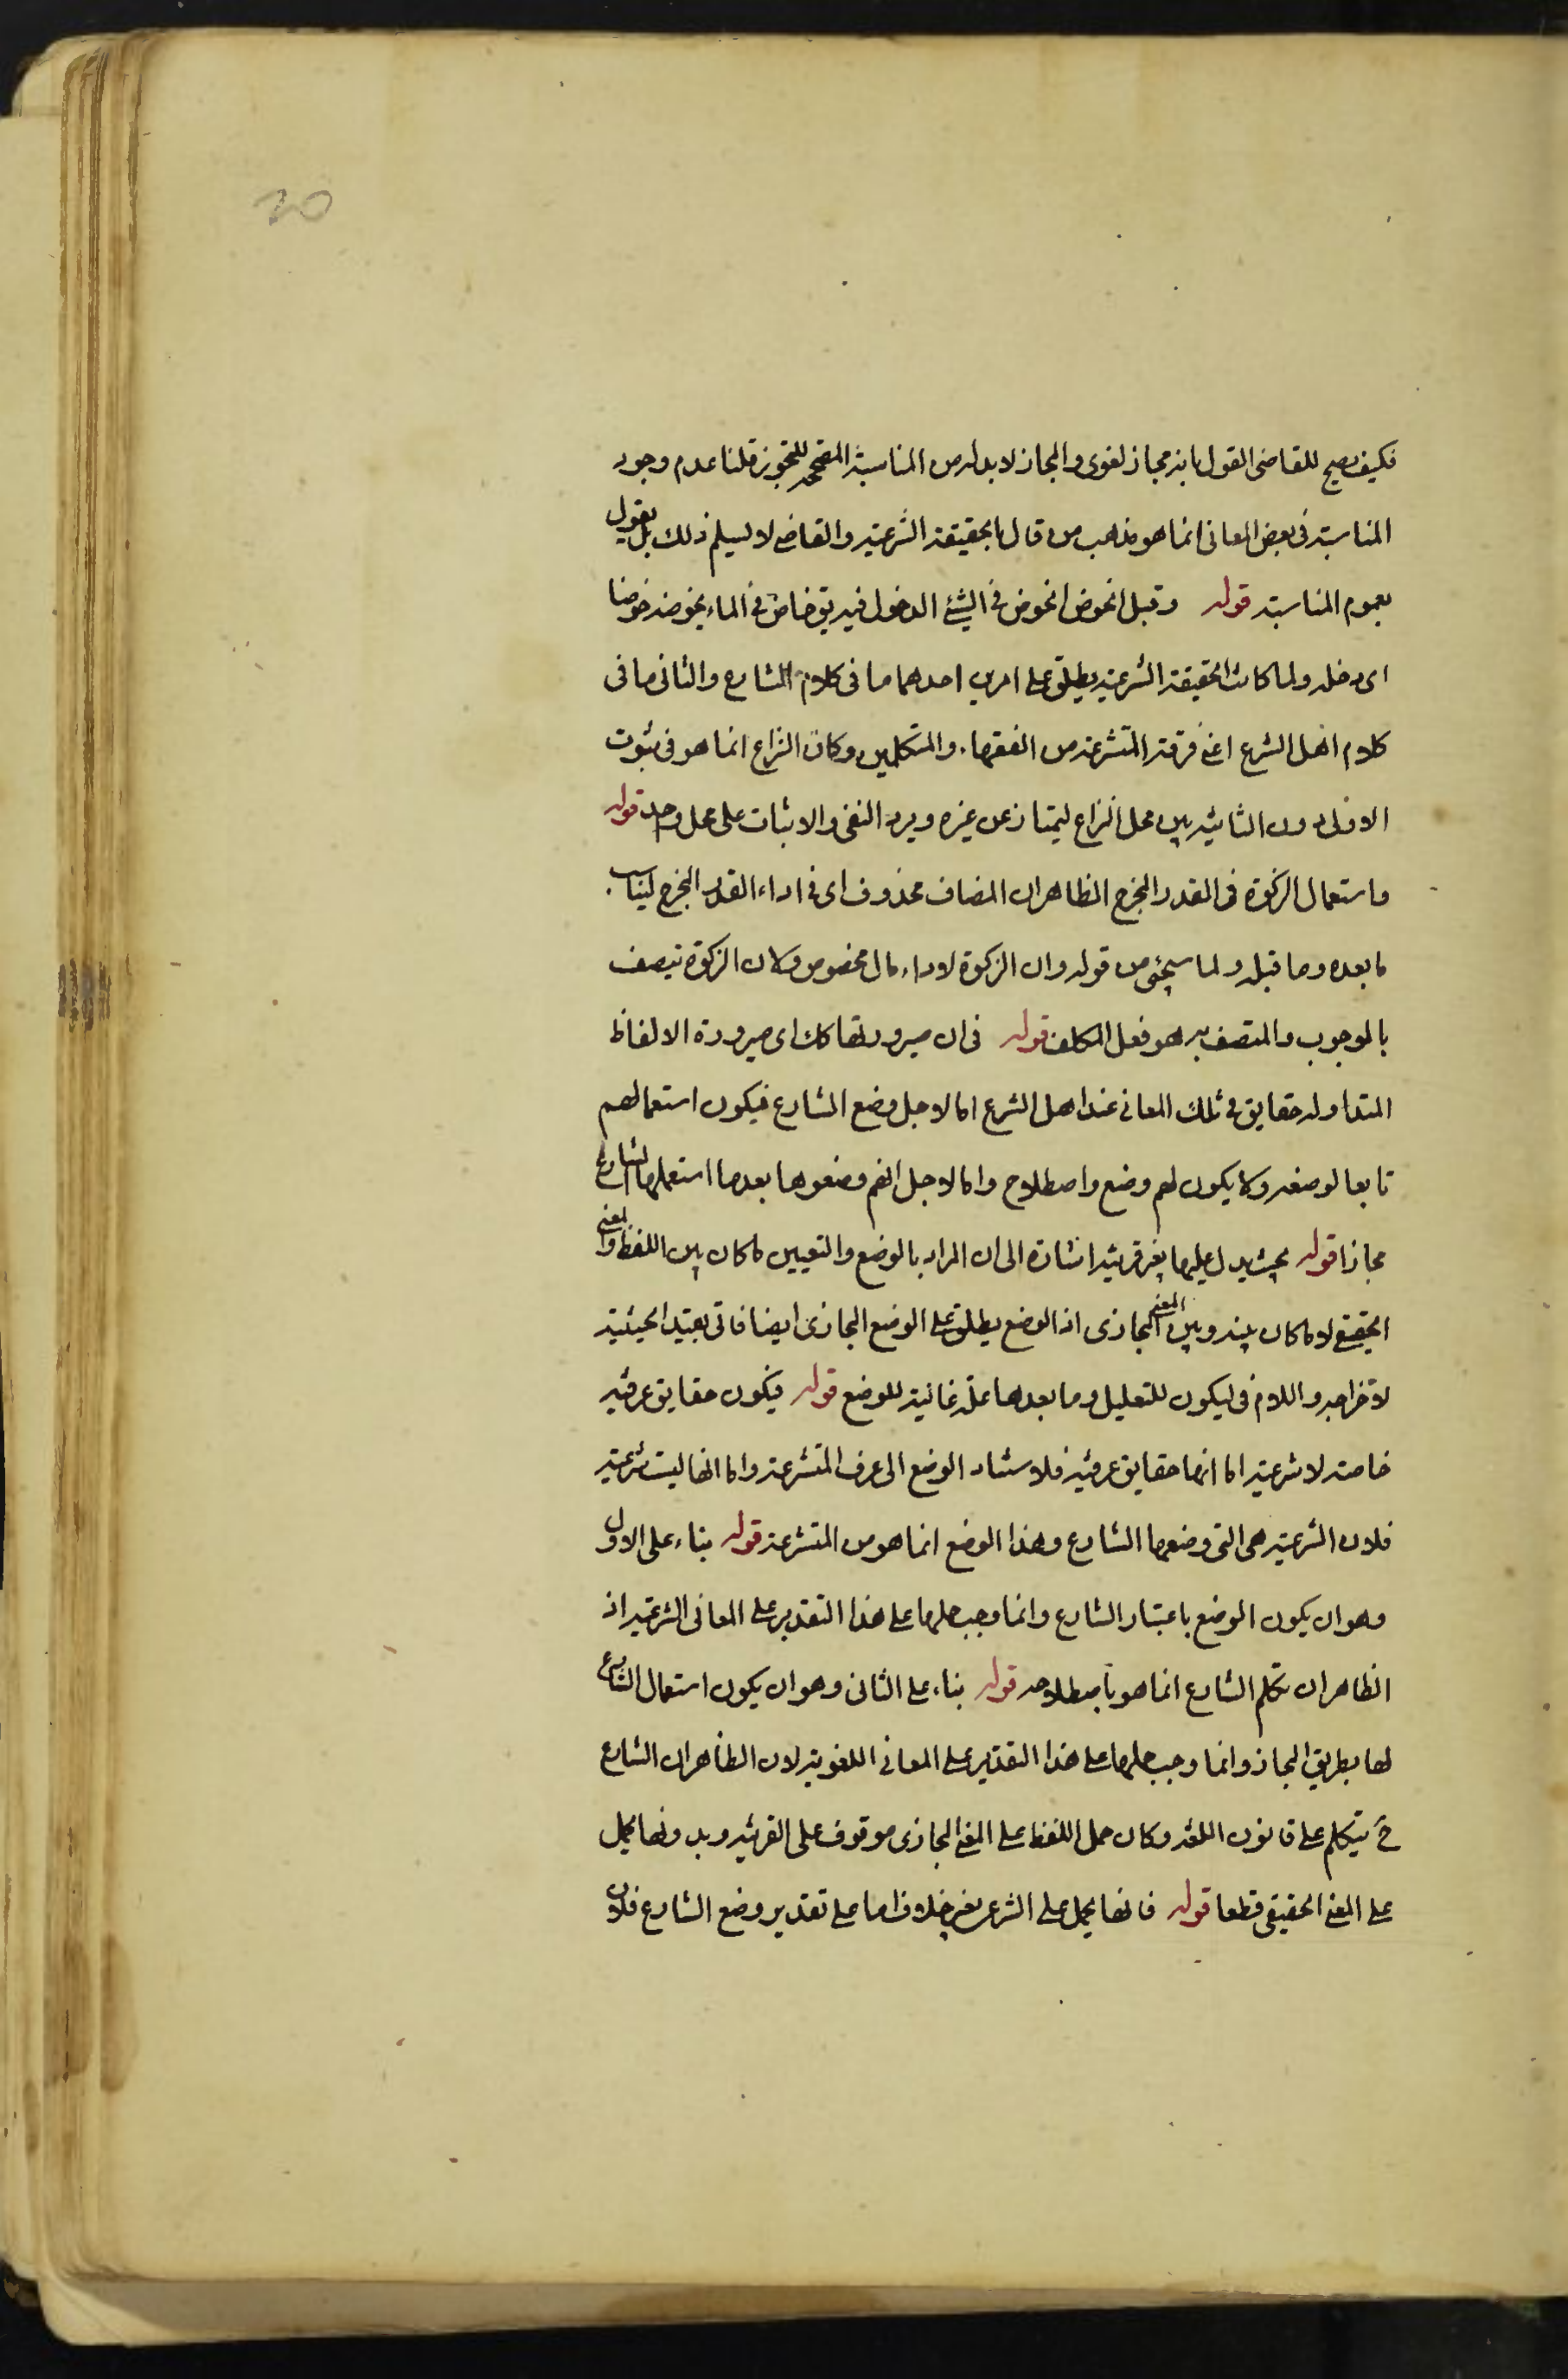 20
فكيف يصح للقاضى القول بانه مجاز لغوى والمجاز لا بد له من المناسبة المصححة للتجوز قلنا عدم وجود
المناسبة فى بعض المعانى انما هو مذهب من قال بالحقيقة الشرعية والقاضى لا يسلم ذلك بل يقول
بعموم المناسبة قوله وقبل الخوض الخوض فى الشئ الدخول فيه يق خاض فى الماء يخوضه خوضا
اى دخله ولما كانت الحقيقة الشرعية يطلق على امرين احدهما ما فى كلام الشارع والثانى ما فى
كلام اهل الشرع اعنى فرقة المتشرعة من الفقهاء والمتكلمين وكان النزاع انما هو فى ثبوت
الاولى دون الثانية بين محل النزاع ليمتاز عن غيره ويرد النفى والاثبات على محل واحد قوله
واستعمال الزكوة فى القدر المخرج الظاهر ان المضاف محذوف اى فى اداء القدر المخرج ليناسب
ما بعده وما قبله ولما سيجئ من قوله وان الزكوة لاداء مال مخصوص ولان الزكوة تتصف
بالوجوب والمتصف به هو فعل المكلف قوله فى ان صيرورتها كك اى صيرورة الالفاظ
المتداوله حقايق فى تلك المعانى عند اهل الشرع اما لاجل وضع الشارع فيكون استعمالهم
تابعا لوضعه ولا يكون لهم وضع واصطلاح واما لاجل انهم وضعوها بعد ما استعملها الشارع
مجازا قوله بحيث يدل عليها بغير قرينة اشارة الى ان المراد بالوضع والتعيين ما كان بين اللفظ والمعنى
الحقيقى لا ما كان بينه وبين المعنى المجازى اذ الوضع يطلق على الوضع المجازى ايضا فاتى بقيد الحيثية
لاخراجه واللام فى ليكون للتعليل وما بعدها علة غائية للوضع قوله فيكون حقايق عرفية
خاصة لا شرعية اما انها حقايق عرفية فلاستناد الوضع الى عرف المتشرعة واما انها ليست شرعية
فلان الشرعية هى التى وضعها الشارع وهذا الوضع انما هو من المتشرعة قوله بناء على الاول
وهو ان يكون الوضع باعتبار الشارع وانما وجب حملها على هذا التقدير على المعانى الشرعية اذ
الظاهر ان تكلم الشارع انما هو باصطلاحه قوله بناء على الثانى وهو ان يكون استعمال الشارع
لها بطريق المجاز وانما وجب حملها على هذا التقدير على المعانى اللغوية لان الظاهر ان الشارع
ح يتكلم على قانون اللغه وكان حمل اللفظ على المعنى المجازى موقوف على القرينه وبدونها يحمل
على المعنى الحقيقى قطعا قوله فانها يحمل على الشرعى بغير خلاف اما على تقدير وضع الشارع فلان